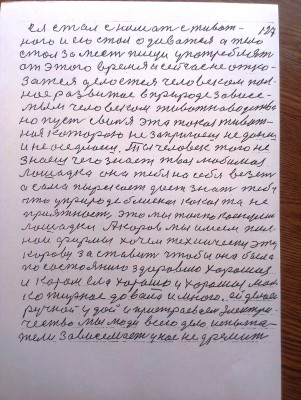 ея стал снимать с живот-
ного и его стал одеватся а тело
стал за мест пищи употреблять
от этого время и сейчас не отка-
зался а делостся человеком пол-
ное развитие в природе зависе-
мым человеком животноводство
но пуст свиня эта такая живот-
ная которою не запрягаеш не доиш
и не оседлаеш. Ты человек того не
знаеш чего знает твоя любимая
лошадка она тебя на себя везет
а сама пырскает дает знать тебе
что у природе близкая какая та не
приятность, это мы только коснулис
лошадки А коров мы имеем пол-
ной фермы хочем технически эту
корову заставить чтобы она была
по состоянию здоровию хорошая
и корм ела хорошо у хорошая моло
ко жирное давала и много. ей делаем
ручной удой и притраеваем электри-
чество мы люди всего дело испыта-
тели Зависемает у нас не дремит